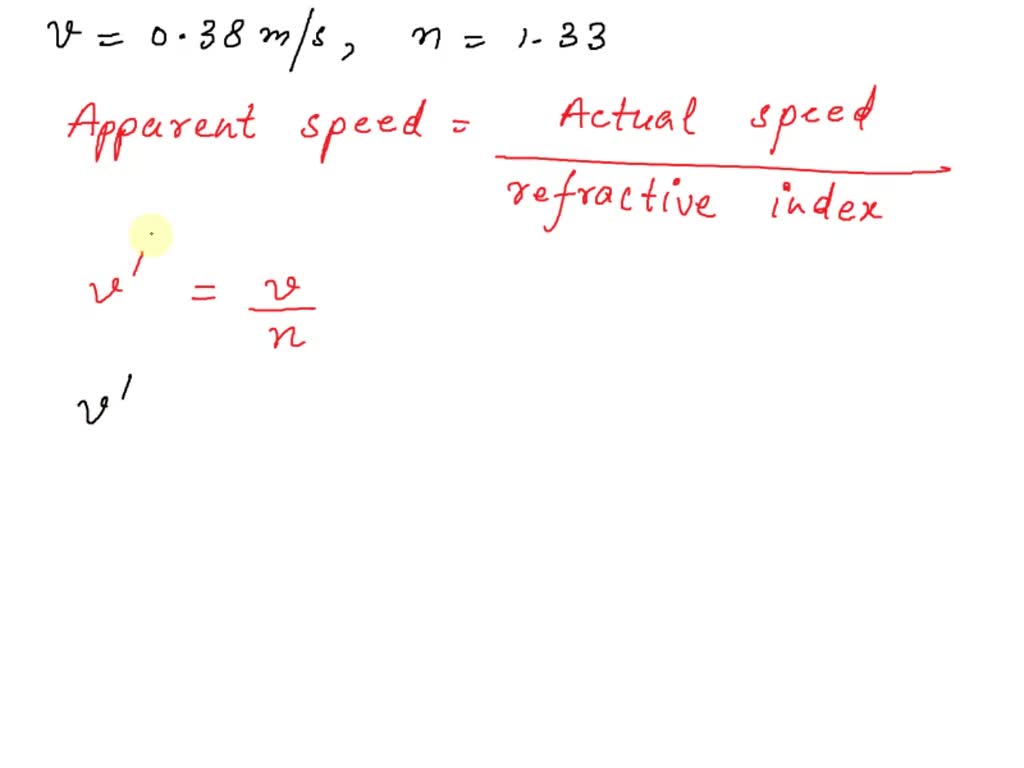 v = 0.38 m/s, n = 1.33
Apparent speed = Actual speed / refractive index
v' = v / n
v'